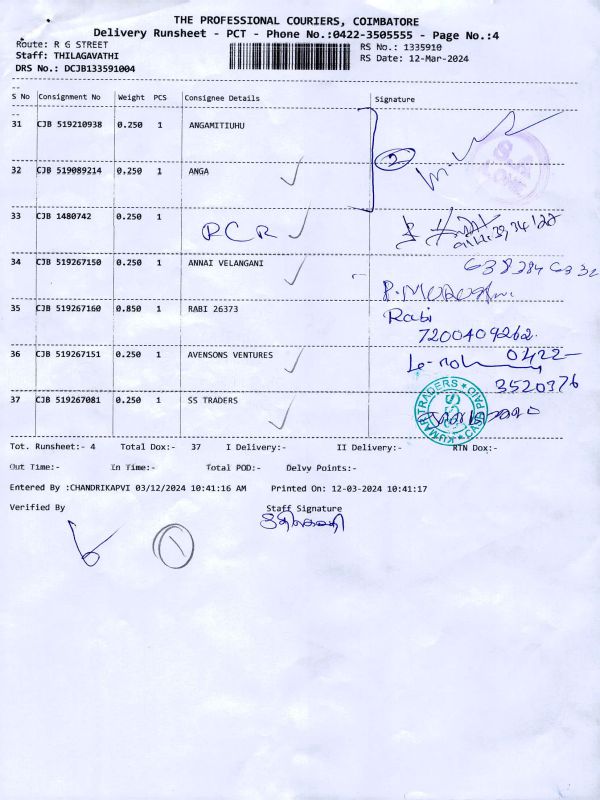 THE PROFESSIONAL COURIERS, COIMBATORE
Delivery Runsheet - PCT - Phone No.:0422-3505555 - Page No.:4
Route: R G STREET
RS No.: 1335910
Staff: THILAGAVATHI
RS Date: 12-Mar-2024
DRS No.: DCJB133591004
S No Consignment No Weight PCS Consignee Details Signature
31 CJB 519210938 0.250 1 ANGAMITIUHU
2
32 CJB 519089214 0.250 1 ANGA
33 CJB 1480742 0.250 1
PCR
34 CJB 519267150 0.250 1 ANNAI VELANGANI
35 CJB 519267160 0.850 1 RABI 26373
Rabi
7200409262.
36 CJB 519267151 0.250 1 AVENSONS VENTURES
0422-
3520376
37 CJB 519267081 0.250 1 SS TRADERS
KUMAR TRADERS
Tot. Runsheet:- 4 Total Dox:- 37 I Delivery:- II Delivery:- RTN Dox:-
Out Time:- In Time:- Total POD:- Delvy Points:-
Entered By :CHANDRIKAPVI 03/12/2024 10:41:16 AM Printed On: 12-03-2024 10:41:17
Verified By Staff Signature